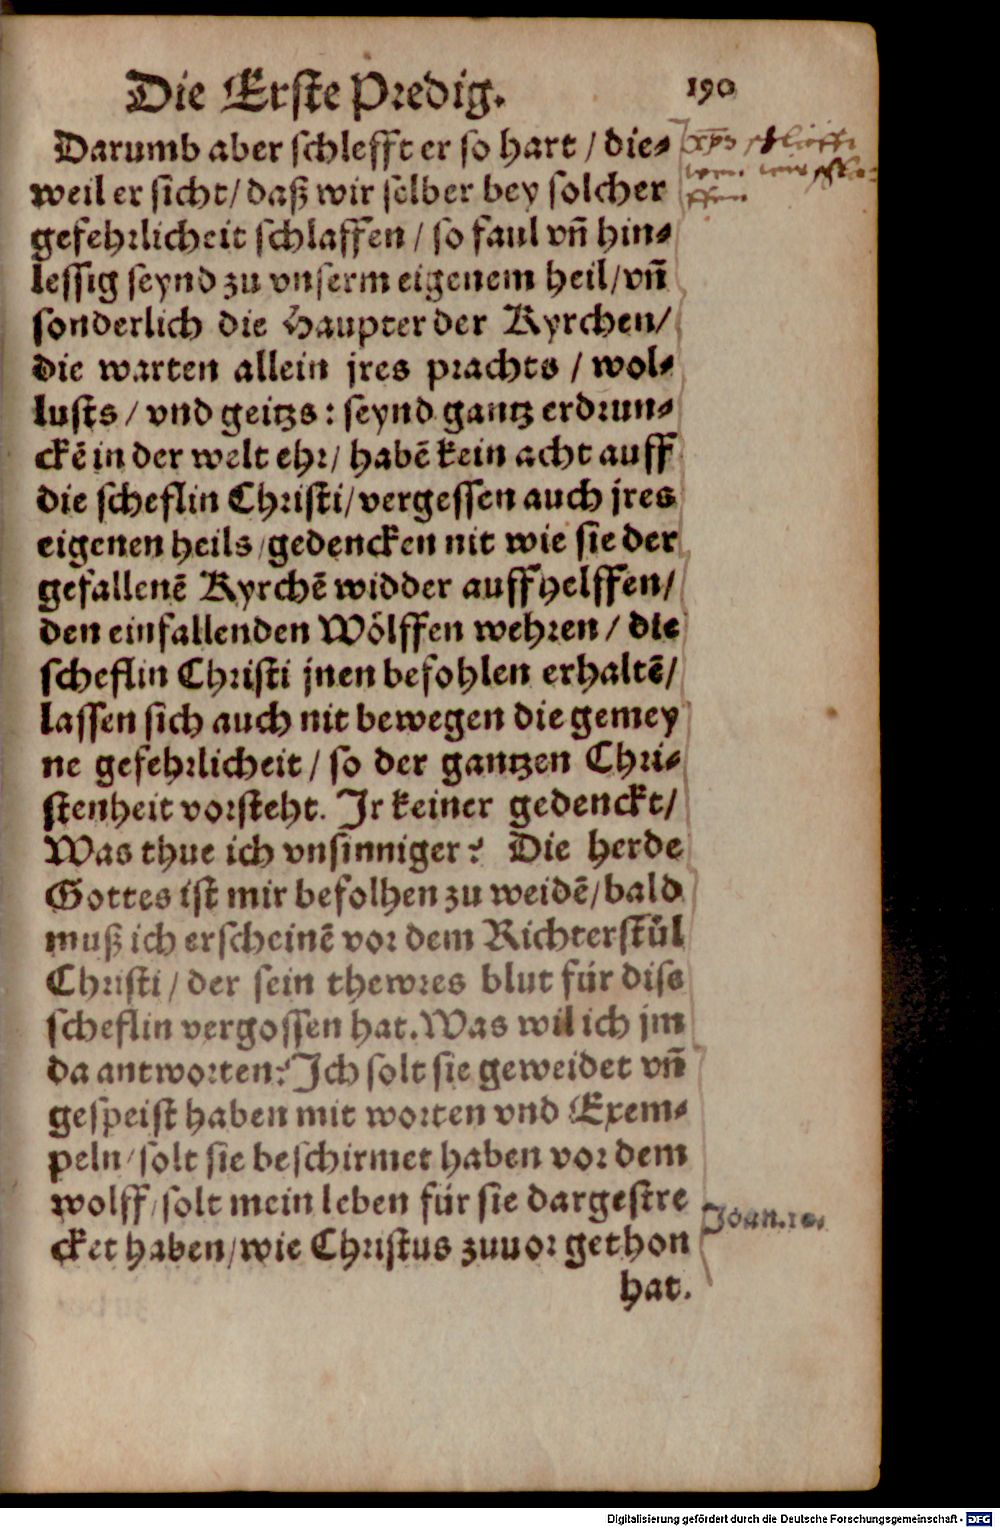 Die Erste Predig. 190
Darumb aber schlefft er so hart / die-
weil er sicht / daß wir selber bey solcher
gefehrlicheit schlaffen / so faul vñ hin-
lessig seynd zu vnserm eigenem heil / vñ
sonderlich die Haupter der Kyrchen /
die warten allein jres prachts / wol-
lusts / vnd geitzs : seynd gantz erdrun-
ckẽ in der welt ehr / habẽ kein acht auff
die scheflin Christi / vergessen auch jres
eigenen heils / gedencken nit wie sie der
gefallenẽ Kyrchẽ widder auffhelffen /
den einfallenden Wölffen wehren / die
scheflin Christi jnen befohlen erhaltẽ /
lassen sich auch nit bewegen die gemey
ne gefehrlicheit / so der gantzen Chri-
stenheit vorsteht. Jr keiner gedenckt /
Was thue ich vnsinniger? Die herde
Gottes ist mir befolhen zu weidẽ / bald
muß ich erscheinẽ vor dem Richterstůl
Christi / der sein thewres blut für dise
scheflin vergossen hat. Was wil ich jm
da antworten? Ich solt sie geweidet vñ
gespeist haben mit worten vnd Exem-
peln / solt sie beschirmet haben vor dem
wolff / solt mein leben für sie dargestre
cket haben / wie Christus zuuor gethon
hat.
Joan.10.
Digitalisierung gefördert durch die Deutsche Forschungsgemeinschaft - DFG